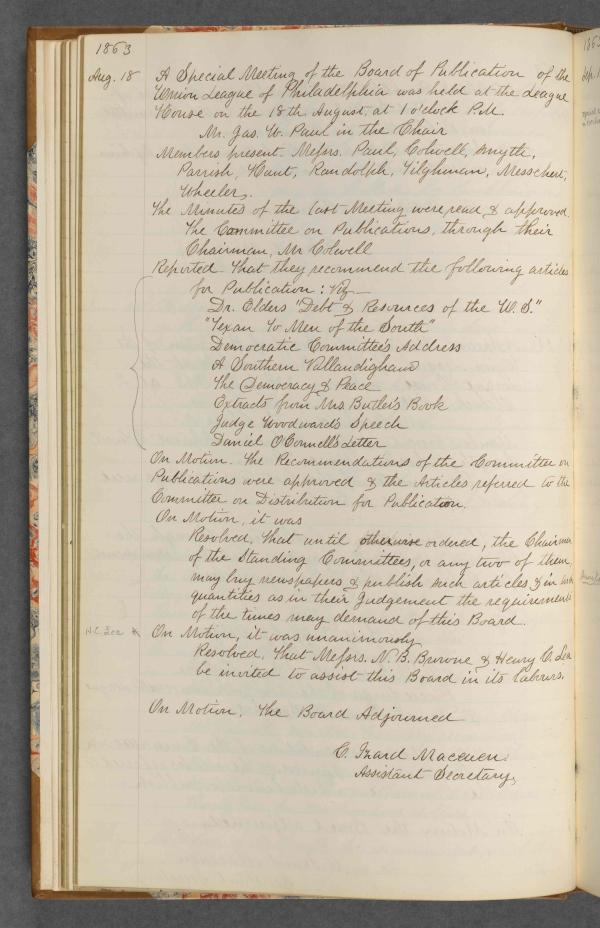 1863
Aug. 18 A Special Meeting of the Board of Publication of the
Union League of Philadelphia was held at the League
House on the 18th August, at 1 o'clock P.M.
Mr. Jas. W. Paul in the Chair
Members present Messrs. Paul, Colwell, Smyth,
Parrish, Hunt, Randolph, Tilghman, Messchert,
Wheeler.
The Minutes of the last Meeting were read & approved.
The Committee on Publications, through their
Chairman, Mr Colwell
Reported That they recommend the following articles
for Publication: Viz
Dr. Elders "Debt & Resources of the U.S."
"Texan to Men of the South"
Democratic Committee's Address
A Southern Vallandigham
The Democracy & Peace
Extracts from Mrs. Butler's Book
Judge Woodward's Speech
Daniel O'Connell's Letter
On Motion. The Recommendations of the Committee on
Publications were approved & the Articles referred to the
Committee on Distribution for Publication.
On Motion, it was
Resolved, That until otherwise ordered, the Chairmen
of the Standing Committees, or any two of them,
may buy newspapers & publish such articles, & in such
quantities as in their Judgement the requirements
of the times may demand of this Board.
H.C. Lea On Motion, it was unanimously
Resolved, That Messrs. N. B. Browne & Henry C. Lea
be invited to assist this Board in its labours.
On Motion, The Board Adjourned
C. Izard Maceuen
Assistant Secretary
1863
Sep. 1